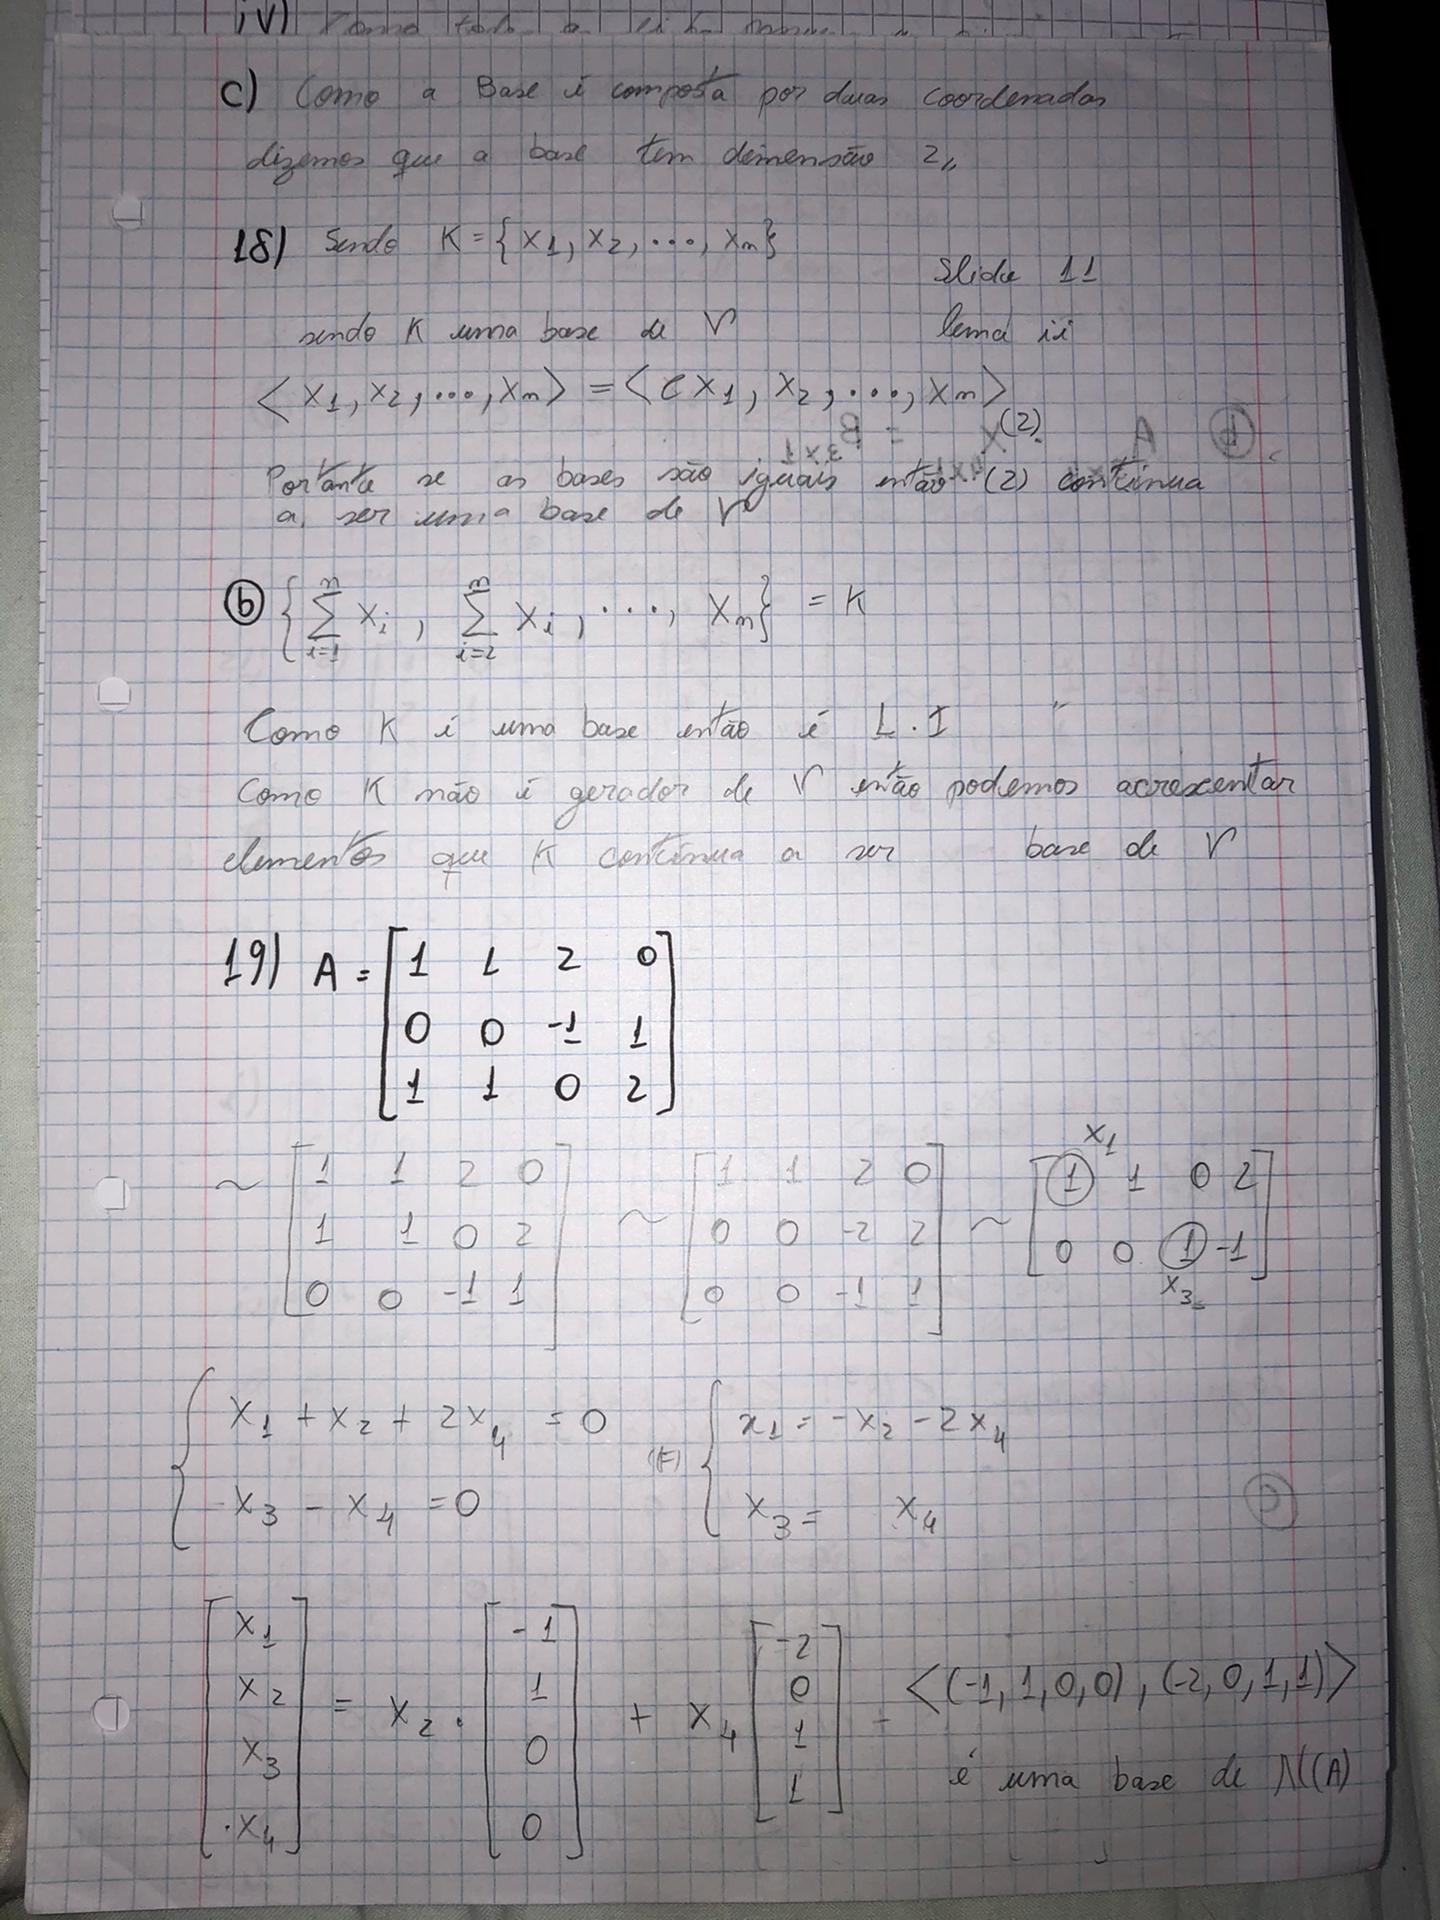 iv)
c) Como a Base é composta por duas coordenadas
dizemos que a base tem dimensão 2,,
18) Sendo K = {x1, x2, ..., xn}
Slide 11
sendo K uma base de V
lema ii
<x1, x2, ..., xn> = <cx1, x2, ..., xn>
(2)
Portanto se as bases são iguais então (2) continua
a ser uma base de V
(b) {∑_{i=1}^{n} xi, ∑_{i=2}^{n} xi, ..., xn} = K
Como K é uma base então é L.I
Como K não é gerador de V então podemos acrescentar
elementos que K continua a ser base de V
19) A = [1 1 2 0
0 0 -1 1
1 1 0 2]
x1
~ [1 1 2 0 ~ [1 1 2 0 ~ [1 1 0 2
1 1 0 2 0 0 -2 2 0 0 1 -1]
0 0 -1 1] 0 0 -1 1]
x3
{ x1 + x2 + 2x4 = 0 { x1 = -x2 - 2x4
x3 - x4 = 0 x3 = x4
[x1 [-1 [-2
x2 = x2 . 1 + x4 0 = <(-1,1,0,0), (-2,0,1,1)>
x3 0 1
x4] 0] 1] é uma base de N(A)